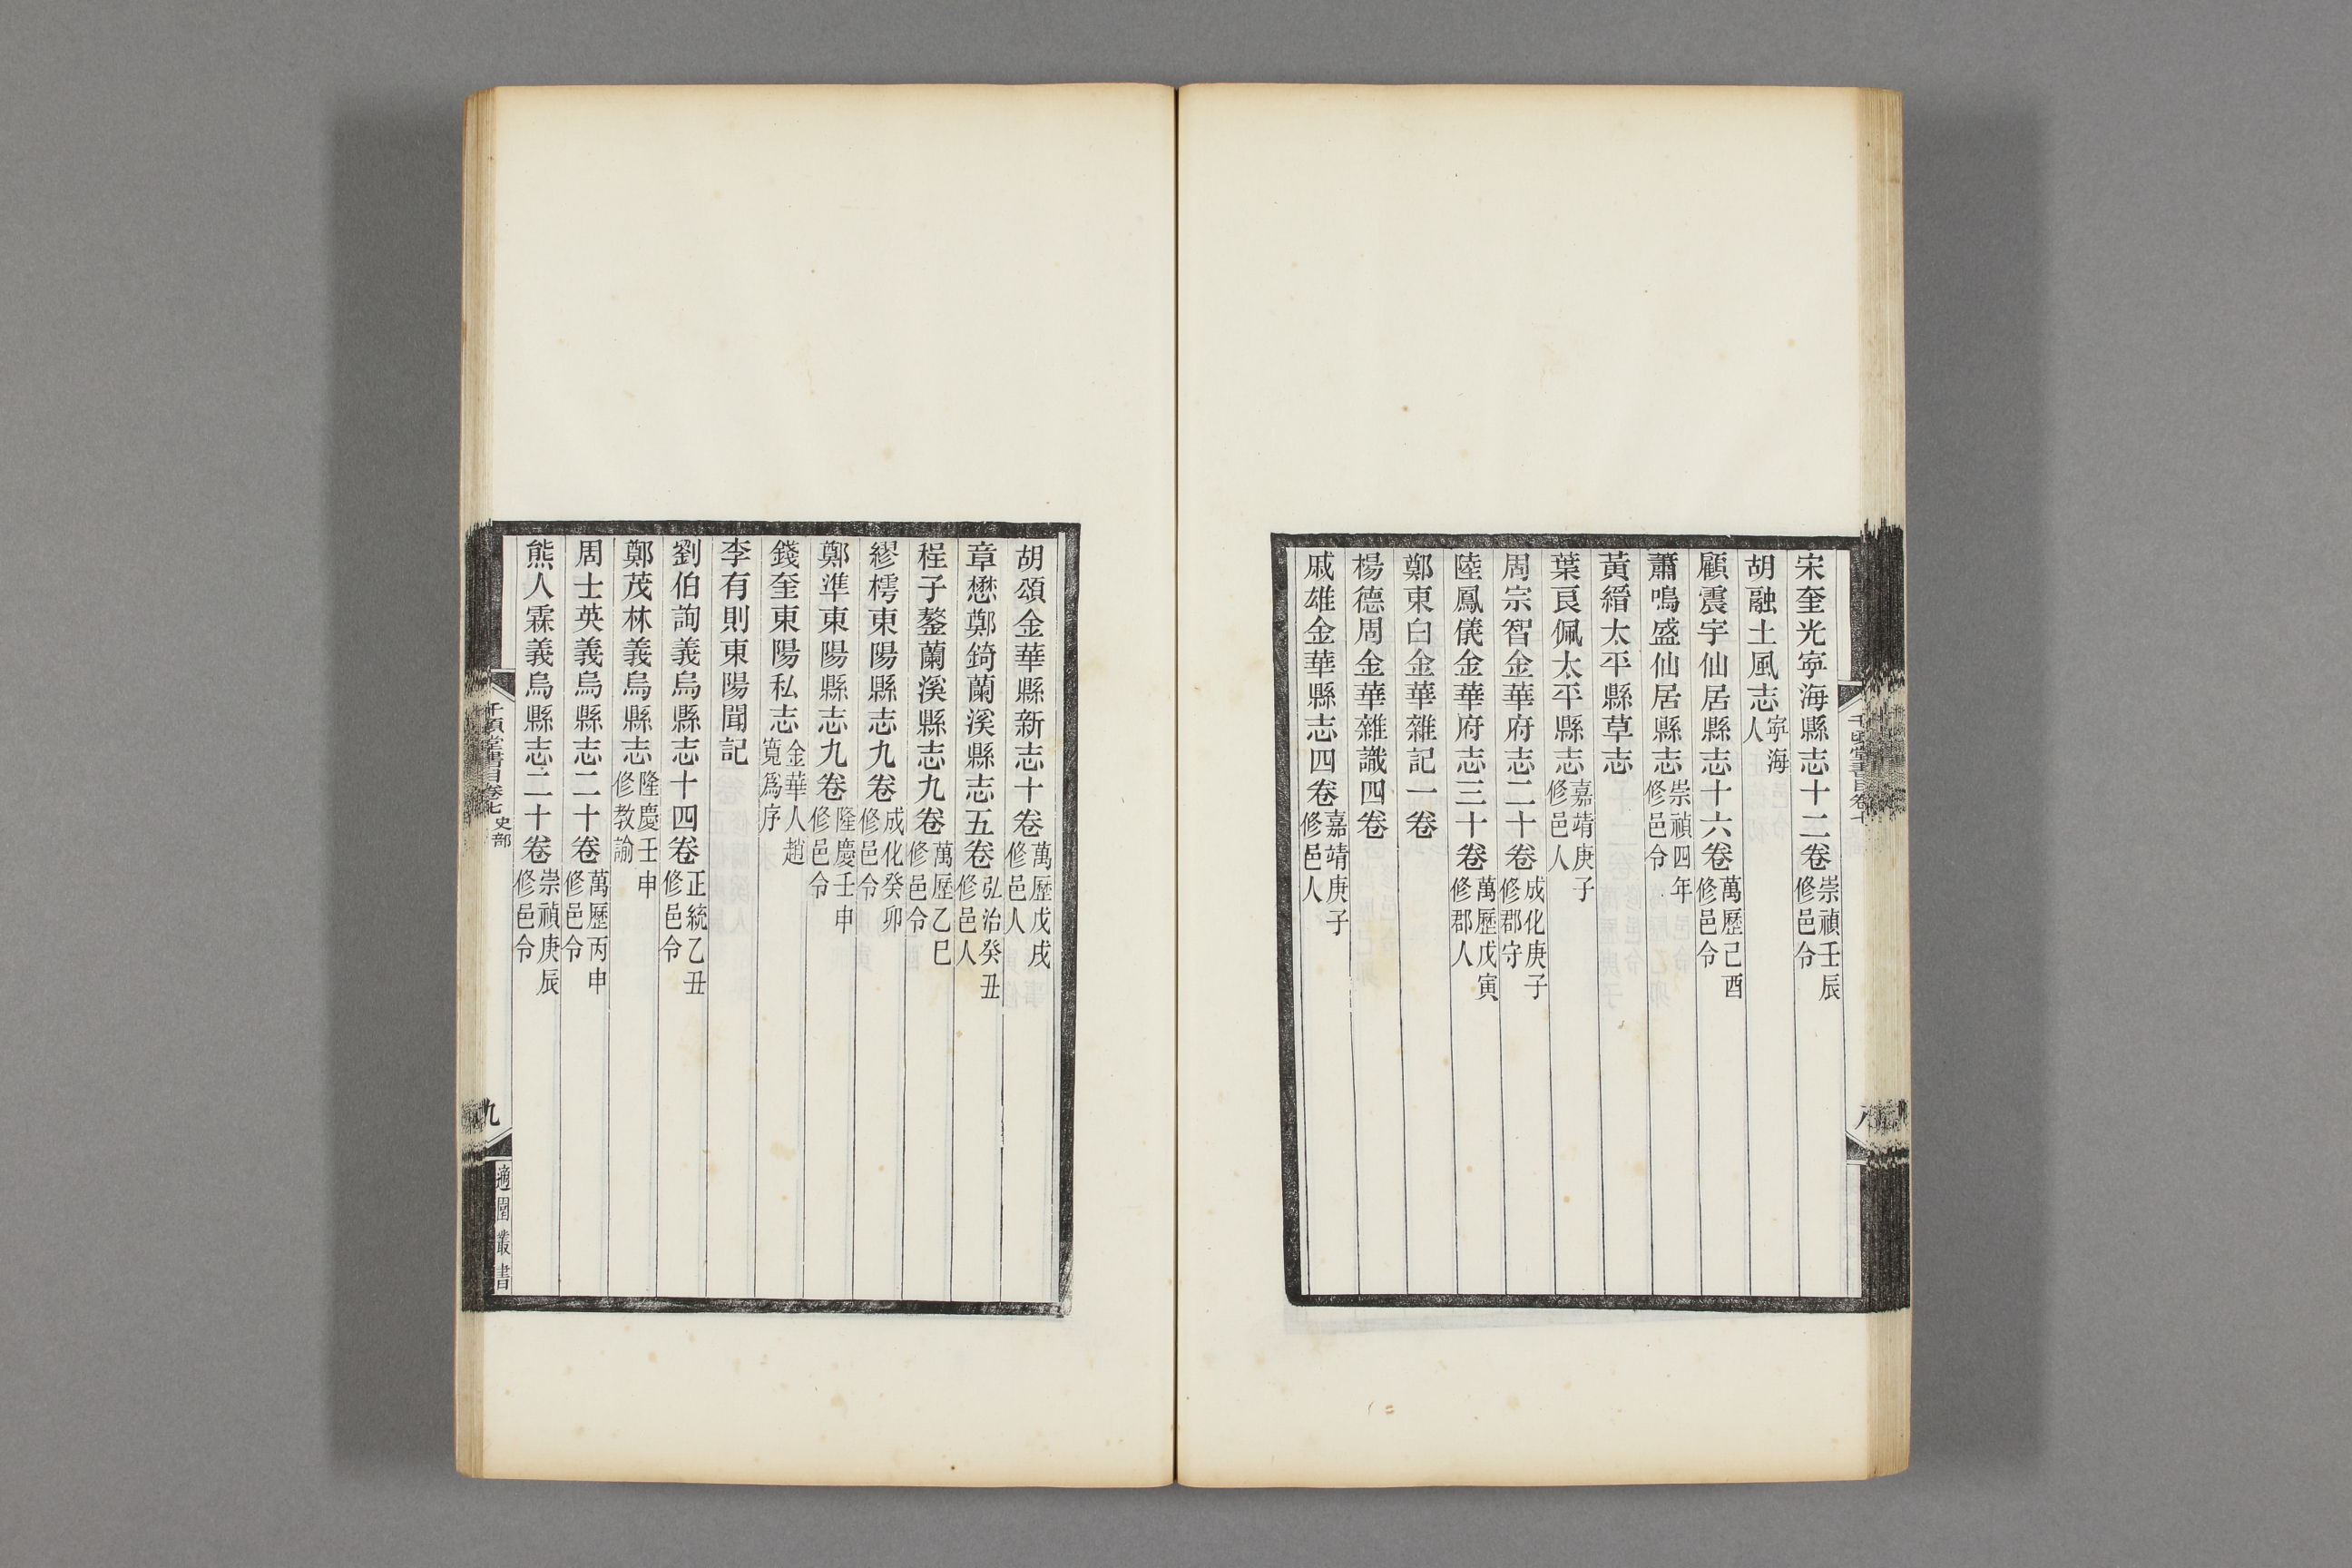 宋奎光寧海縣志十二卷崇禎壬辰修邑令
胡融土風志寧海人
顧震宇仙居縣志十六卷萬歷己酉修邑令
蕭鳴盛仙居縣志崇禎四年修邑令
黃縉太平縣草志
葉良佩太平縣志嘉靖庚子修邑人
周宗智金華府志二十卷成化庚子修郡守
陸鳳儀金華府志三十卷萬歷戊寅修郡人
鄭東白金華雜記一卷
楊德周金華雜識四卷
戚雄金華縣志四卷嘉靖庚子修邑人
胡頌金華縣新志十卷萬歷戊戌修邑人
章懋鄭錡蘭溪縣志五卷弘治癸丑修邑人
程子鏊蘭溪縣志九卷萬歷乙巳修邑令
繆樗東陽縣志九卷成化癸卯修邑令
鄭準東陽縣志九卷隆慶壬申修邑令
錢奎東陽私志金華人趙寬爲序
李有則東陽聞記
劉伯詢義烏縣志十四卷正統乙丑修邑令
鄭茂林義烏縣志隆慶壬申修教諭
周士英義烏縣志二十卷萬歷丙申修邑令
熊人霖義烏縣志二十卷崇禎庚辰修邑令
千頃堂書目卷七 史部
九
適園叢書